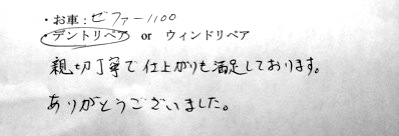 ・お車：ゼファー1100
・デントリペア or ウィンドリペア
親切丁寧で仕上がりも満足しております。
ありがとうございました。